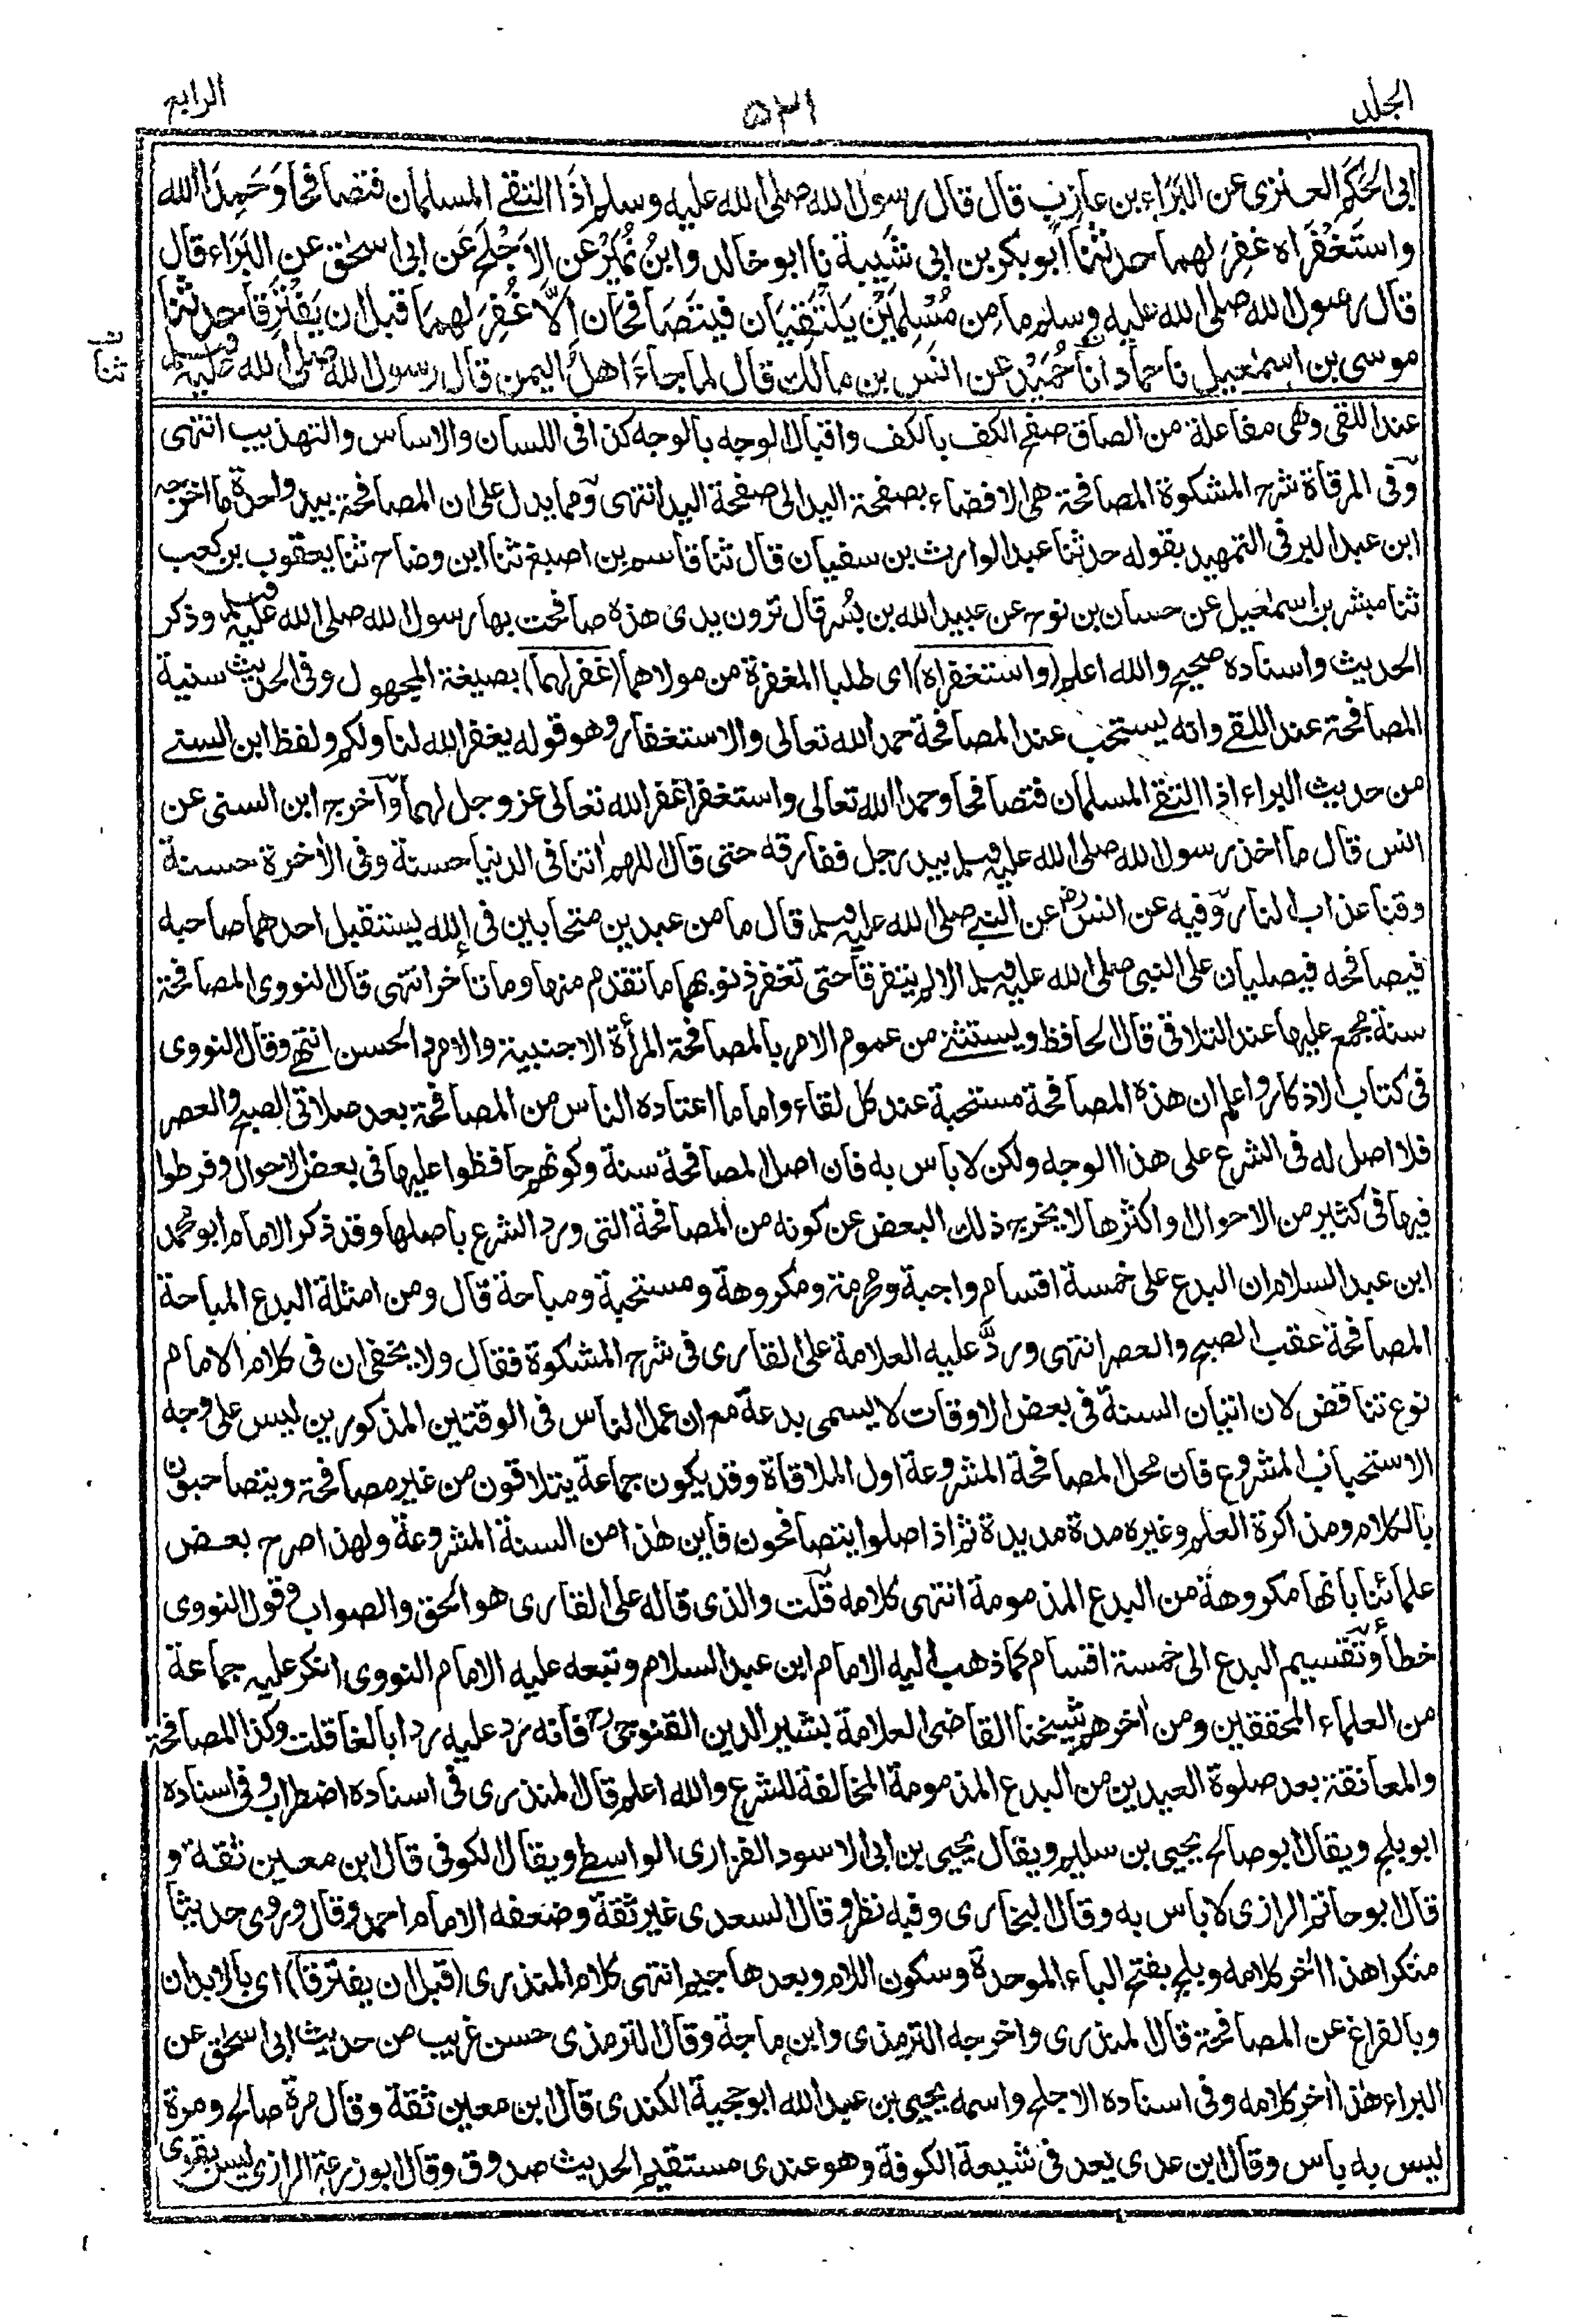 الجلد
٥٣١
الرابع
ابى الحَكَم العنزى عن البَرَاء بن عازب قال قال رسول الله صلى الله عليه وسلم اذا التقى المسلمان فتصافحا وَحَمِدَا الله
واستَغْفَرَاه غفِرَ لهما حدثنا ابو بكر بن ابى شَيبة نا ابو خالد وابنُ نُمَيْر عن الاَجْلَح عَن ابى اسحٰق عن البَرَاء قال
قال رسول الله صلى الله عليه وسلم ما مِن مُسْلِمَيْن يَلْتَقِيَان فيتَصَافحَان اِلّا غُفِرَ لهمَا قبل ان يَفْتَرِقَا حدثنا
موسى بن اسمٰعيل نا حماد انا حُمَيْد عن انس بن مالك قال لما جاءَ اهلُ اليمن قال رسول الله صلى الله عليه وسلم
ثنا
عند اللقى وهى مفاعلة من الصاق صفح الكف بالكف واقبال الوجه بالوجه كذا فى اللسان والاساس والتهذيب انتهى
وفى المرقاة شرح المشكوة المصافحة هى الافضاء بصفحة اليد الى صفحة اليد انتهى ومما يدل على ان المصافحة بيد واحدة ما اخرجه
ابن عبد البر فى التمهيد بقوله حدثنا عبد الوارث بن سفيان قال ثنا قاسم بن اصبغ ثنا ابن وضاح ثنا يعقوب بن كعب
ثنا مبشر بن اسمٰعيل عن حسان بن نوح عن عبيد الله بن بُسْر قال ترون يدى هذه صافحت بها رسول الله صلى الله عليه وسلم وذكر
الحديث واسناده صحيح والله اعلم (واستغفراه) اى طلبا المغفرة من مولاهما (غفر لهما) بصيغة المجهول وفى الحديث سنية
المصافحة عند اللقى وانه يستحب عند المصافحة حمد الله تعالى والاستغفار وهو قوله يغفر الله لنا ولكم ولفظ ابن السنى
من حديث البراء اذا التقى المسلمان فتصافحا وحمدا الله تعالى واستغفرا غفر الله تعالى عز وجل لهما وآخرج ابن السنى عن
انس قال ما اخذ رسول الله صلى الله عليه وسلم بيد رجل ففارقه حتى قال اللهم اٰتنا فى الدنيا حسنة وفى الاٰخرة حسنة
وقنا عذاب النار وفيه عن انس رض عن النبى صلى الله عليه وسلم قال ما من عبدين متحابين فى الله يستقبل احدهما صاحبه
فيصافحه فيصليان على النبى صلى الله عليه وسلم الا لم يتفرقا حتى تغفر ذنوبهما ما تقدم منها وما تأخر انتهى قال النووى المصافحة
سنة مجمع عليها عند التلاقى قال الحافظ ويستثنى من عموم الامر بالمصافحة المرأة الاجنبية والامرد الحسن انتهى وقال النووى
فى كتاب الاذكار واعلم ان هذه المصافحة مستحبة عند كل لقاء واما ما اعتاده الناس من المصافحة بعد صلاتى الصبح والعصر
فلا اصل له فى الشرع على هذا الوجه ولكن لا باس به فان اصل المصافحة سنة وكونهم حافظوا عليها فى بعض الاحوال وفرطوا
فيها فى كثير من الاحوال او اكثرها لا يخرج ذلك البعض عن كونه من المصافحة التى ورد الشرع باصلها وقد ذكر الامام ابو محمد
ابن عبد السلام ان البدع على خمسة اقسام واجبة ومحرمة ومكروهة ومستحبة ومباحة قال ومن امثلة البدع المباحة
المصافحة عقب الصبح والعصر انتهى وردَّ عليه العلامة على القارى فى شرح المشكوة فقال ولا يخفى ان فى كلام الامام
نوع تناقض لان اتيان السنة فى بعض الاوقات لا يسمى بدعة مع ان عمل الناس فى الوقتين المذكورين ليس على وجه
الاستحباب المشروع فان محل المصافحة المشروعة اول الملاقاة وقد يكون جماعة يتلاقون من غير مصافحة ويتصاحبون
بالكلام ومذاكرة العلم وغيره مدة مديدة ثم اذا صلوا يتصافحون فاين هٰذا من السنة المشروعة ولهذا صرح بعض
علمائنا بانها مكروهة من البدع المذمومة انتهى كلامه قلت والذى قاله على القارى هو الحق والصواب وقول النووى
خطأ وتقسيم البدع الى خمسة اقسام كما ذهب اليه الامام ابن عبد السلام وتبعه عليه الامام النووى انكر عليه جماعة
من العلماء المحققين ومن اٰخرهم شيخنا القاضى العلامة بشير الدين القنوجى رح فانه رَد عليه ردا بالغا قلت وكذا المصافحة
والمعانقة بعد صلوة العيدين من البدع المذمومة المخالفة للشرع والله اعلم قال المنذرى فى اسناده اضطراب وفى اسناده
ابو بلج ويقال ابو صالح يحيى بن سليم ويقال يحيى بن ابى الاسود الفزارى الواسطى ويقال الكوفى قال ابن معين ثقة و
قال ابو حاتم الرازى لا باس به وقال البخارى وفيه نظر وقال السعدى غير ثقة وضعفه الامام احمد وقال وروى حديثا
منكرا هذا اٰخر كلامه وبلج بفتح الباء الموحدة وسكون اللام وبعدها جيم انتهى كلام المنذرى (قبل ان يفترقا) اى بالابدان
وبالفراغ عن المصافحة قال المنذرى واخرجه الترمذى وابن ماجة وقال الترمذى حسن غريب من حديث ابى اسحٰق عن
البراء هٰذا اٰخر كلامه وفى اسناده الاجلح واسمه يحيى بن عبد الله ابو حجية الكندى قال ابن معين ثقة وقال مرة صالح ومرة
ليس به باس وقال ابن عدى يعد فى شيعة الكوفة وهو عندى مستقيم الحديث صدوق وقال ابو زرعة الرازى ليس بقوى